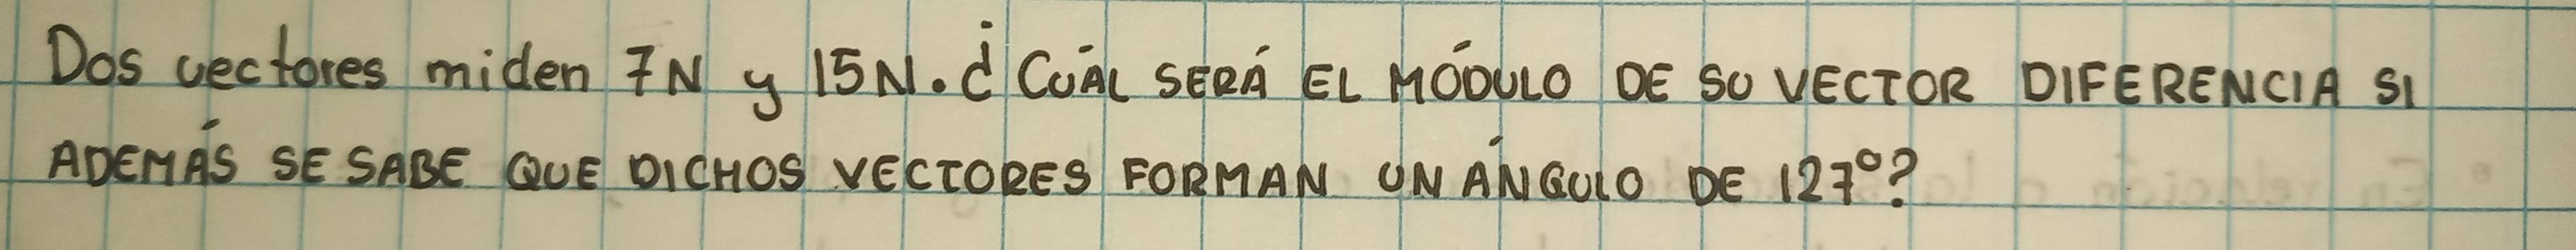 Dos vectores miden 7N y 15N. ¿CUÁL SERÁ EL MÓDULO DE SU VECTOR DIFERENCIA SI
ADEMÁS SE SABE QUE DICHOS VECTORES FORMAN UN ÁNGULO DE 127°?